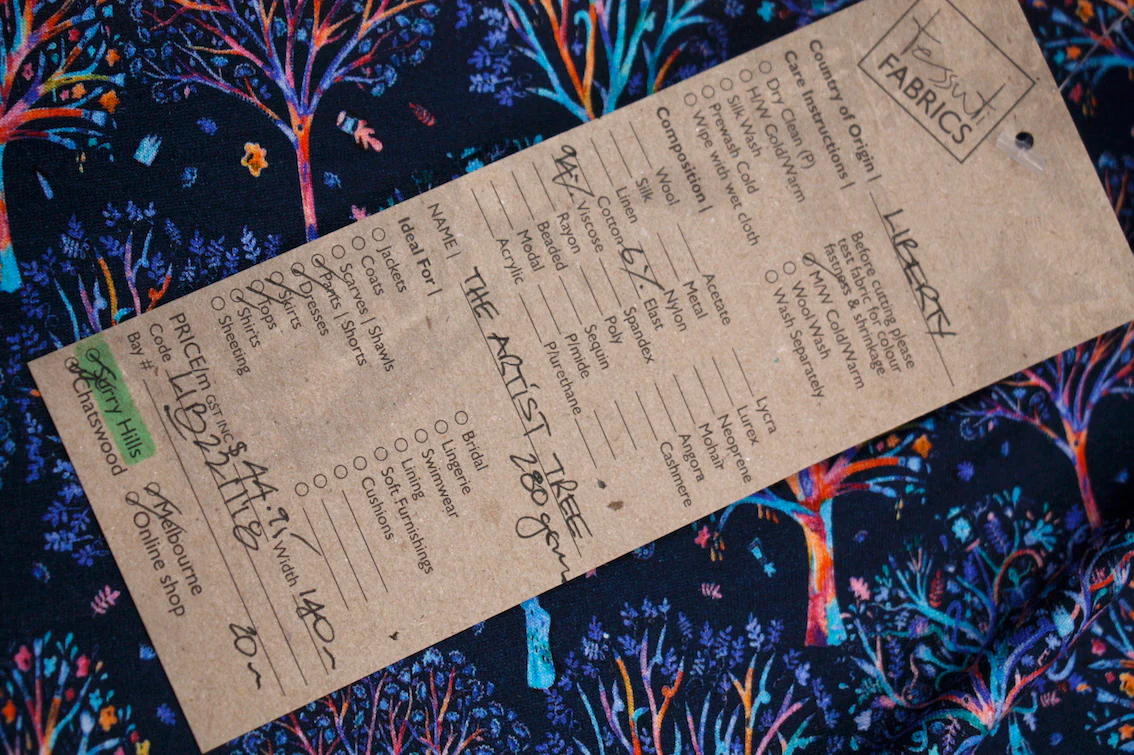 tessuti
FABRICS
Country of Origin | LIBERTY
Care Instructions |
Dry Clean (P)
H/W Cold/Warm
Silk Wash
Prewash Cold
Wipe with wet cloth
Before cutting please
test fabric for colour
fastness & shrinkage
M/W Cold/Warm
Wool Wash
Wash Separately
Composition |
Wool
Silk
Linen
Cotton
94% Viscose
Rayon
Beaded
Modal
Acrylic
Acetate
Metal
Nylon
6% Elast
Spandex
Poly
Sequin
P/mide
P/urethane
Lycra
Lurex
Neoprene
Mohair
Angora
Cashmere
NAME | THE ARTIST TREE
280gsm
Ideal For |
Jackets
Coats
Scarves | Shawls
Pants | Shorts
Dresses
Skirts
Tops
Shirts
Sheeting
Bridal
Lingerie
Swimwear
Lining
Soft Furnishings
Cushions
PRICE/m GST INC $44.95 Width 140m
Code LIB22TT18
Bay # 20m
Surry Hills
Chatswood
Melbourne
Online shop